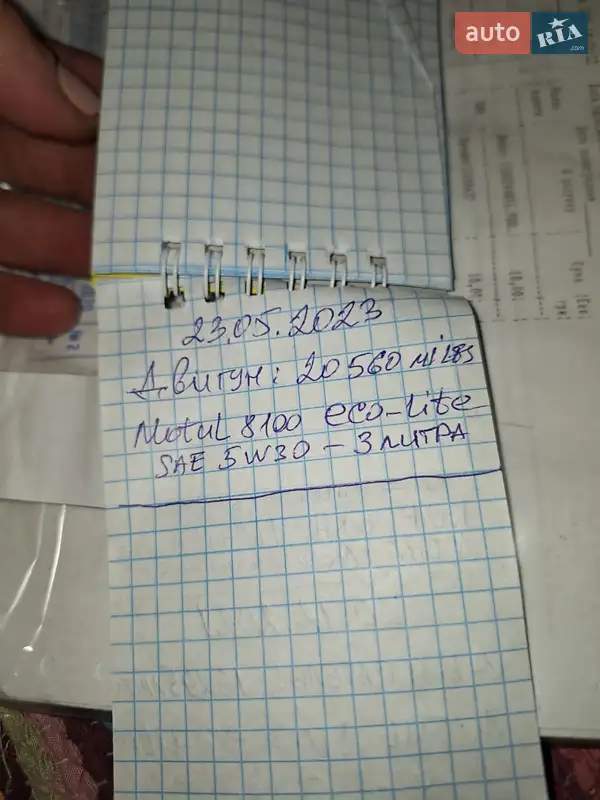 auto RIA .com
23.05.2023
Двигун: 20560 miles
Motul 8100 eco-lite
SAE 5W30 - 3 литра